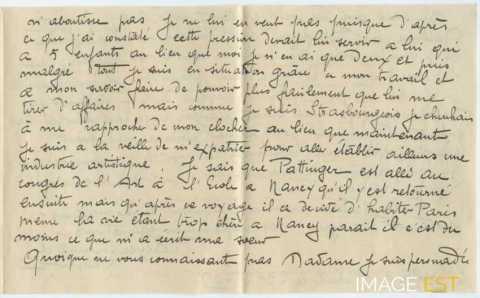 n'aboutisse pas Je ne lui en veut pas puisque d'après
ce que j'ai constaté cette pression devait lui servir a lui qui
a 5 enfants au lieu que moi je n'en ai que deux et puis
malgré tout je suis en situation grâce a mon travail et
a mon savoir faire de pouvoir plus facilement que lui me
tirer d'affaires mais comme je suis Strasbourgeois je cherchais
à me rapproche de mon clocher au lieu que maintenant
je suis a la veille de m'expatrier pour aller etablir ailleurs une
industrie artistique. Je sais que Pattinger est allé au
congrès de l'Art à l'Ecole a Nancy qu'il y est retourné
ensuite mais qu'après ce voyage il ca décidé d'habiter Paris
même la vie étant trop chère a Nancy parait il c'est du
moins ce que m'a écrit une sœur
Quoique ne vous connaissant pas Madame je suis persuadé
IMAGE'EST